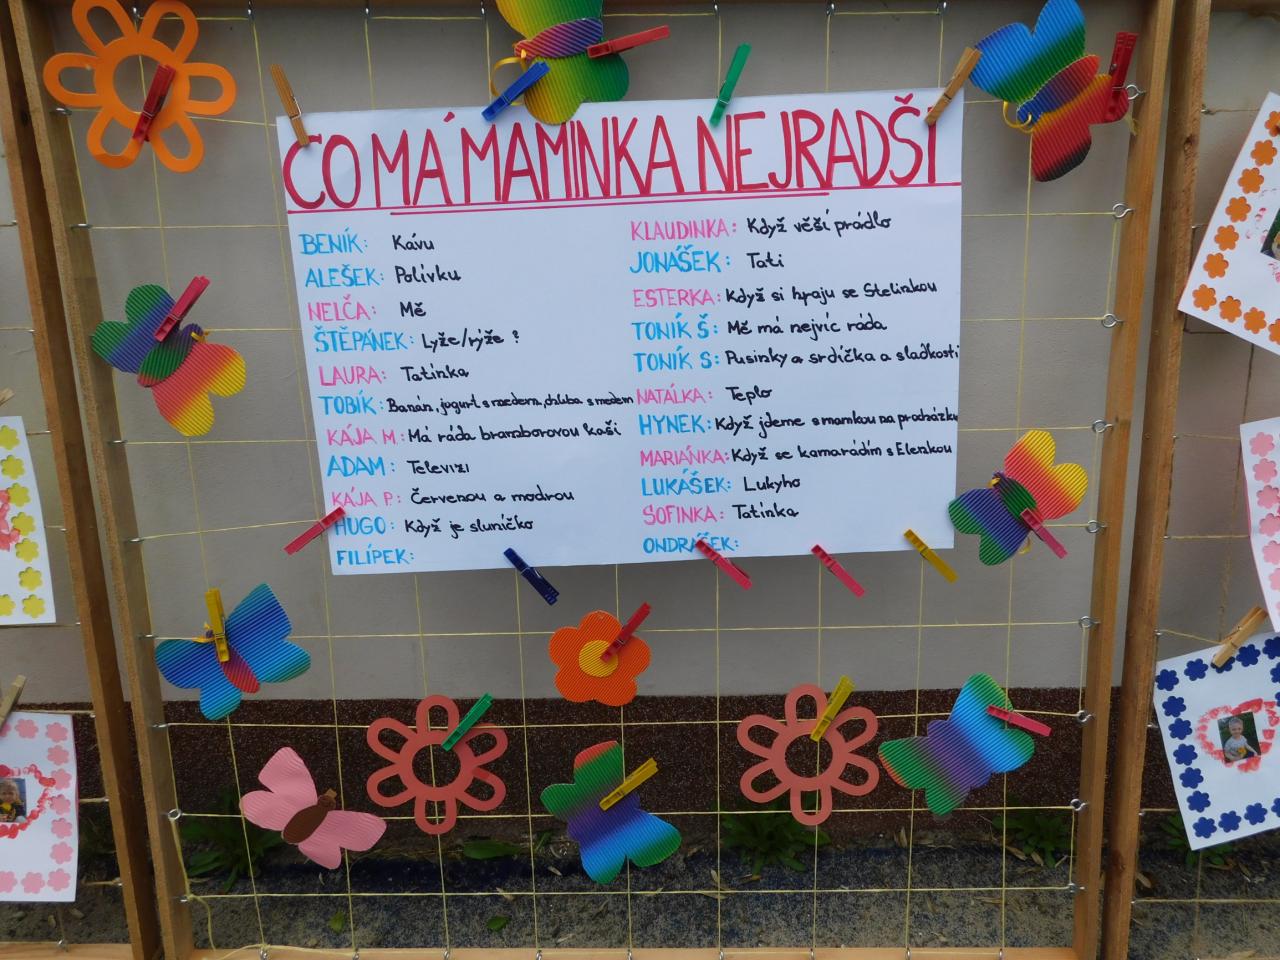 CO MÁ MAMINKA NEJRADŠI
BENÍK: Kávu
ALEŠEK: Polívku
NELČA: Mě
ŠTĚPÁNEK: Lyže/rýže ?
LAURA: Tatínka
TOBÍK: Banán, jogurt s medem, chleba s medem
KÁJA M.: Má ráda bramborovou kaši
ADAM: Televizi
KÁJA P.: Červenou a modrou
HUGO: Když je sluníčko
FILÍPEK:
KLAUDINKA: Když věší prádlo
JONÁŠEK: Tati
ESTERKA: Když si hraju se Stelinkou
TONÍK Š: Mě má nejvíc ráda
TONÍK S: Pusinky a srdíčka a sladkosti
NATÁLKA: Teplo
HYNEK: Když jdeme s mamkou na procházku
MARIÁNKA: Když se kamarádím s Elenkou
LUKÁŠEK: Lukyho
SOFINKA: Tatínka
ONDRÁŠEK: